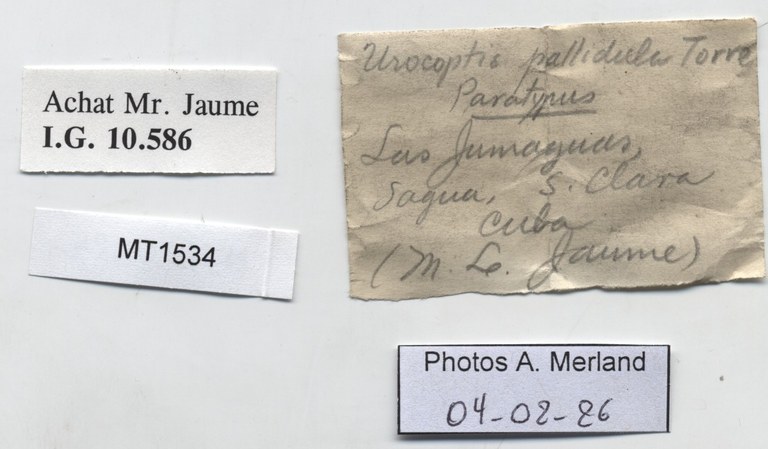 Achat Mr. Jaume
I.G. 10.586
MT1534
Urocoptis pallidula Torre
Paratypus
Las Jumaguas,
Sagua, S. Clara
Cuba
(M. L. Jaume)
Photos A. Merland
04-02-26